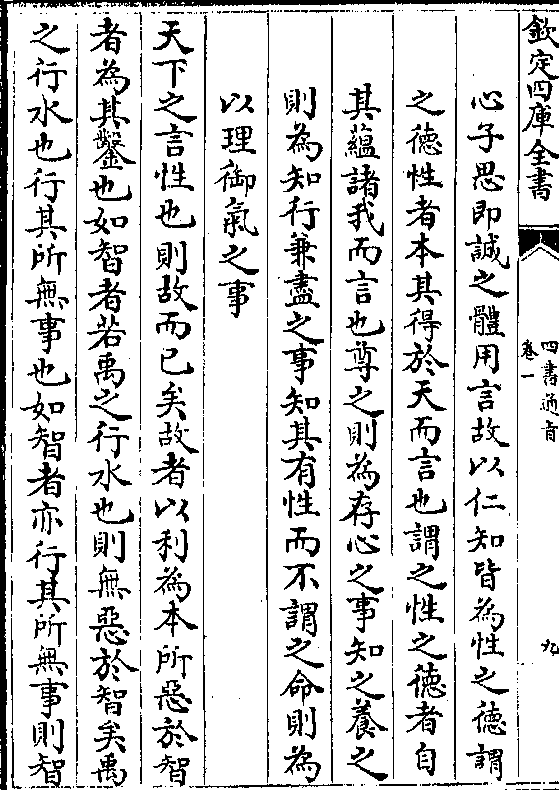 欽定四庫全書
四書通旨
卷一
九
心子思即誠之體用言故以仁知皆為性之德謂
之德性者本其得於天而言也謂之性之德者自
其蘊諸我而言也尊之則為存心之事知之養之
則為知行兼盡之事知其有性而不謂之命則為
以理御氣之事
天下之言性也則故而已矣故者以利為本所惡於智
者為其鑿也如智者若禹之行水也則無惡於智矣禹
之行水也行其所無事也如智者亦行其所無事則智